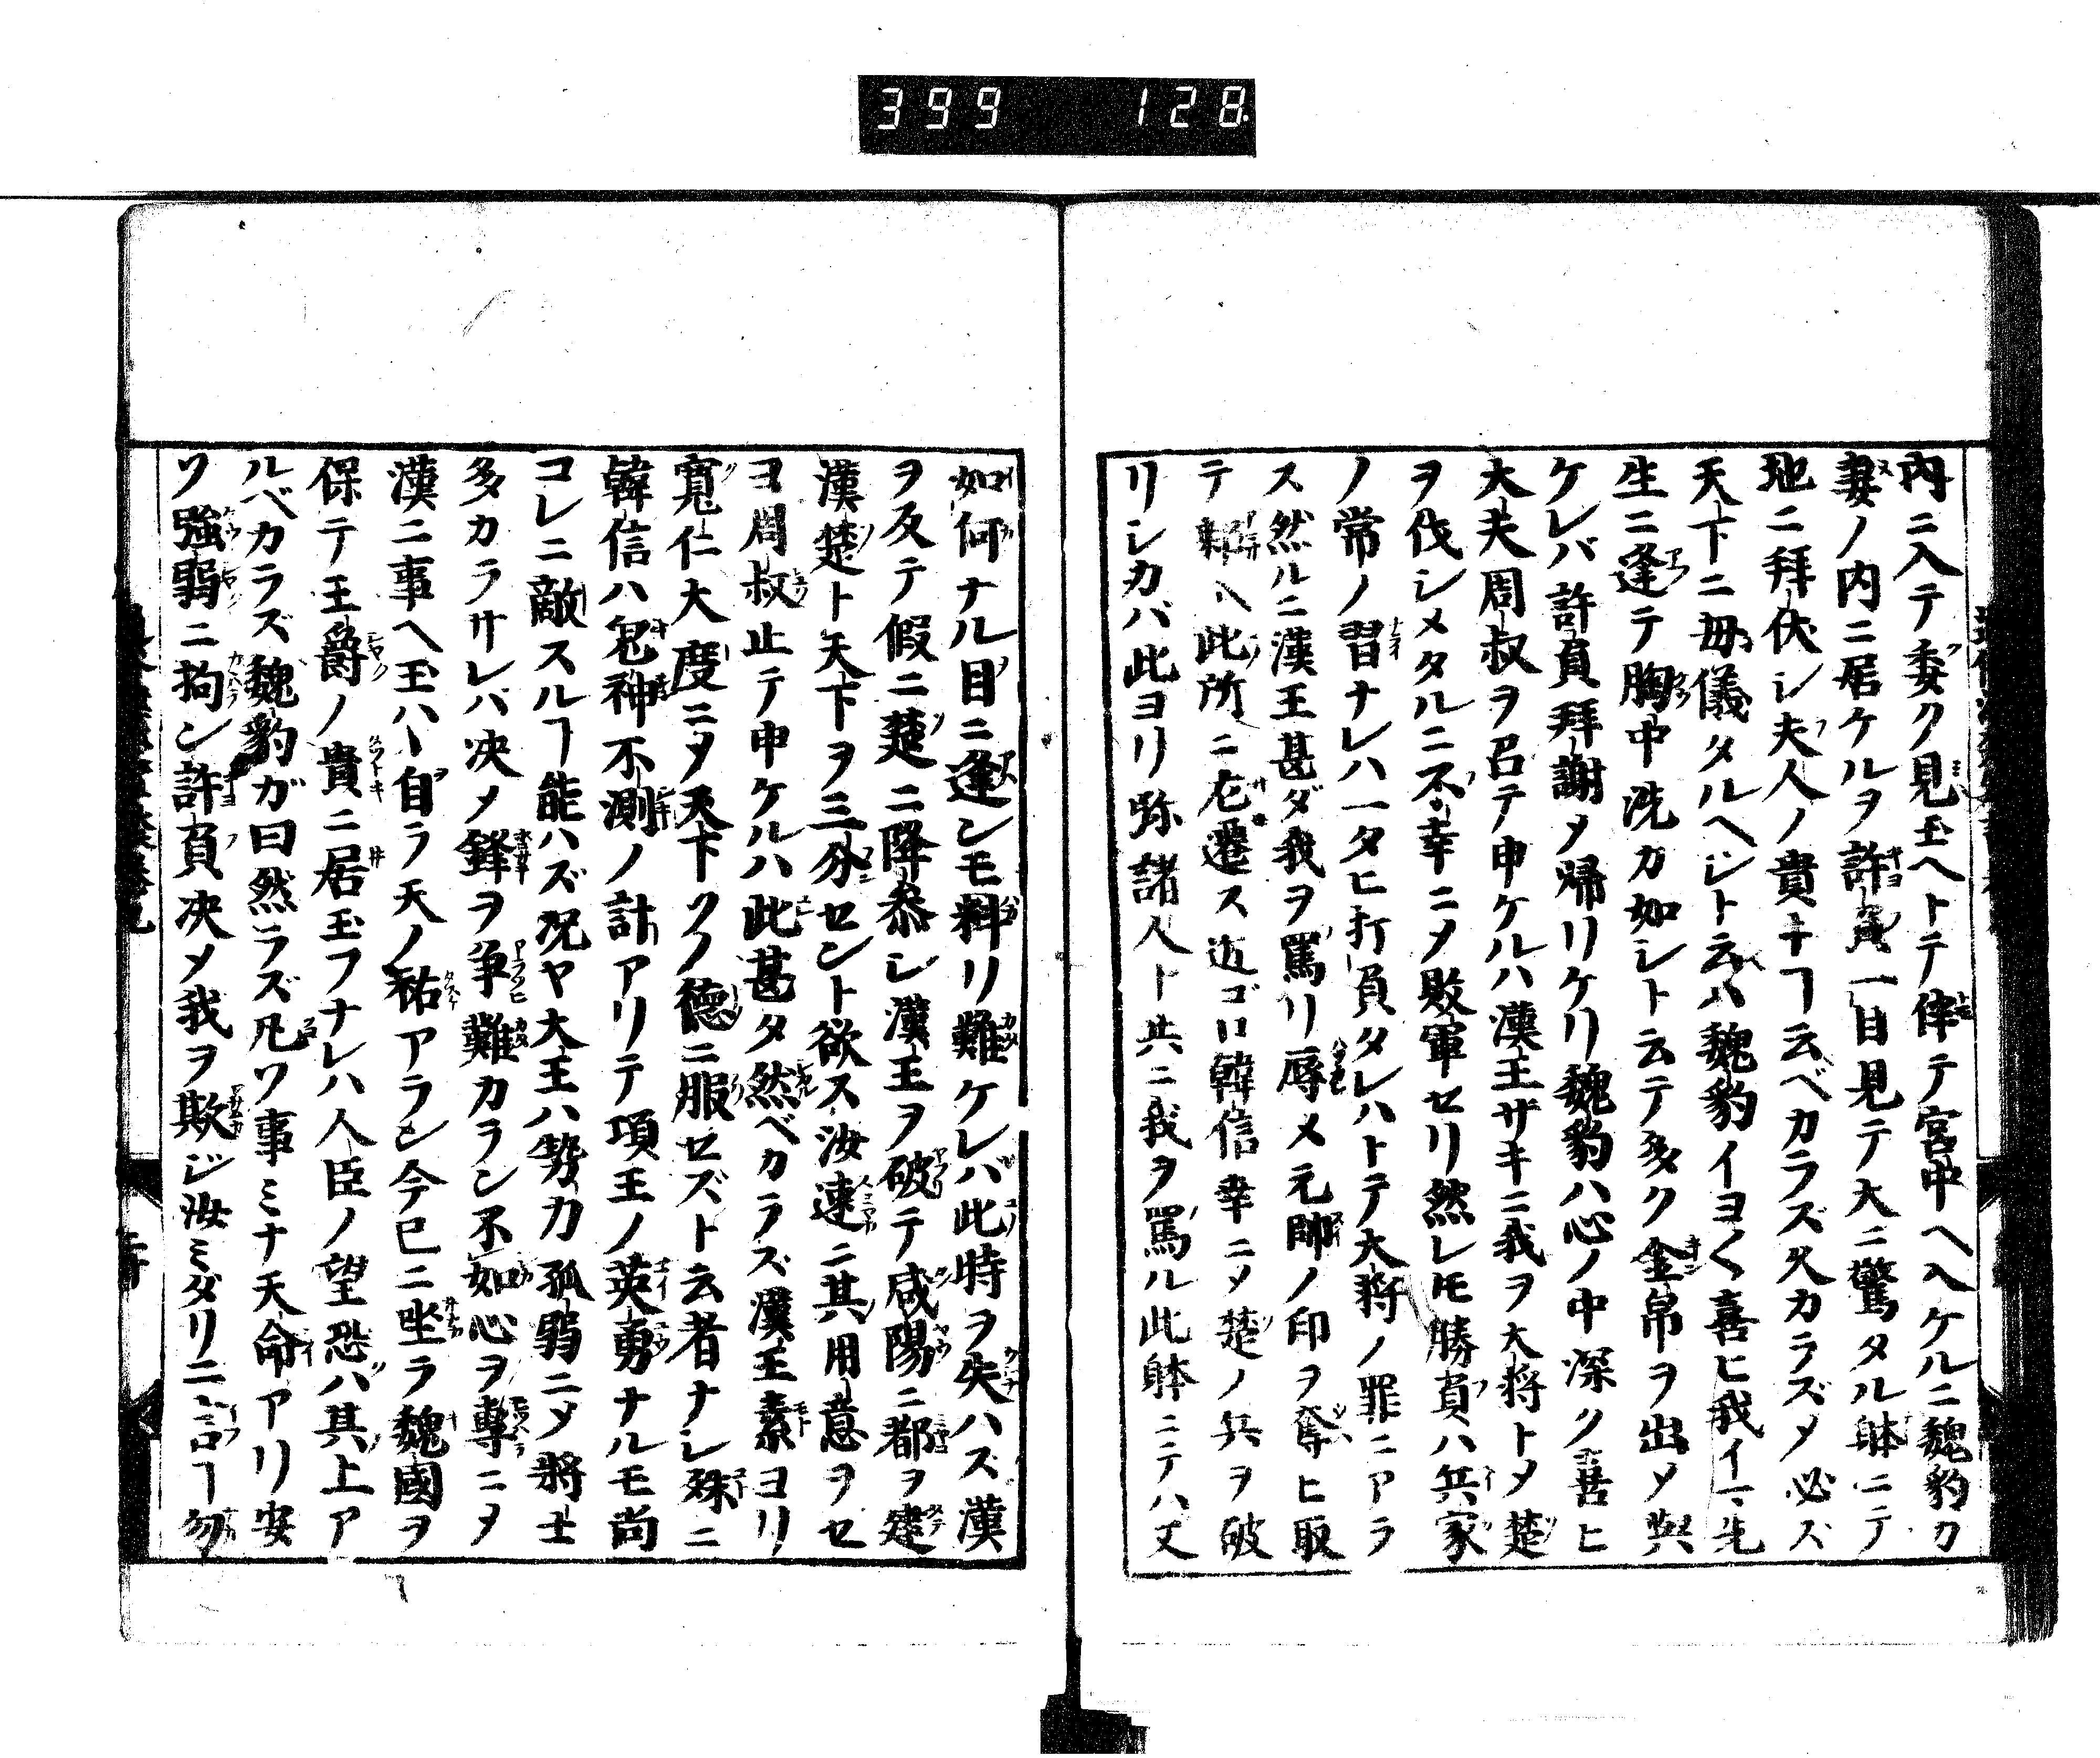 399 128
内ニ入テ委ク見玉ヘトテ倅テ宮中ヘ入ケルニ魏豹カ
妻ノ内ニ居ケルヲ許負一目見テ大ニ驚タル躰ニテ
地ニ拜伏シ夫人ノ貴キヿ云ベカラズ久カラズメ必ズ
天下ニ毋儀タルヘシト云ハ魏豹イヨ〱喜ヒ我イマ先
生ニ逢テ胸中洗カ如シト云テ多ク金帛ヲ出メ與
ケレバ許負拜謝メ帰リケリ魏豹ハ心ノ中深ク喜ヒ
大夫周叔ヲ召テ申ケルハ漢王サキニ我ヲ大将トメ楚
ヲ伐シメタルニ不幸ニメ敗軍セリ然レモ勝負ハ兵家
ノ常ノ習ナレハ一タヒ打負タレハトテ大将ノ罪ニアラ
ス然ルニ漢王甚ダ我ヲ罵リ辱メ元帥ノ印ヲ奪ヒ取
テ ヘ此所ニ左遷ス近ゴロ韓信幸ニメ楚ノ兵ヲ破
リシカバ此ヨリ弥諸人ト共ニ我ヲ罵ル此躰ニテハ又
如何ナル目ニ逢ンモ料リ難ケレバ此時ヲ失ハス漢
ヲ反テ假ニ楚ニ降参シ漢王ヲ破テ咸陽ニ都ヲ建
漢楚ト天下ヲ三分セント欲ス汝速ニ其用意ヲセ
ヨ周叔止テ申ケルハ此甚タ然ベカラズ漢王素ヨリ
寛仁大度ニメ天下ソノ德ニ服セズト云者ナシ殊ニ
韓信ハ鬼神不測ノ計アリテ項王ノ英勇ナルモ尚
コレニ敵スルヿ能ハズ况ヤ大王ハ勢力孤弱ニメ將士
多カラサレバ决メ鋒ヲ争難カラン不如心ヲ專ニメ
漢ニ事ヘ玉ハヽ自ラ天ノ祐アラン今已ニ坐ラ魏國ヲ
保テ王爵ノ貴ニ居玉フナレハ人臣ノ望恐ハ其上ア
ルベカラズ魏豹ガ曰然ラズ凡ソ事ミナ天命アリ安
ソ強弱ニ拘ン許負决メ我ヲ欺ジ汝ミダリニ言ヿ勿